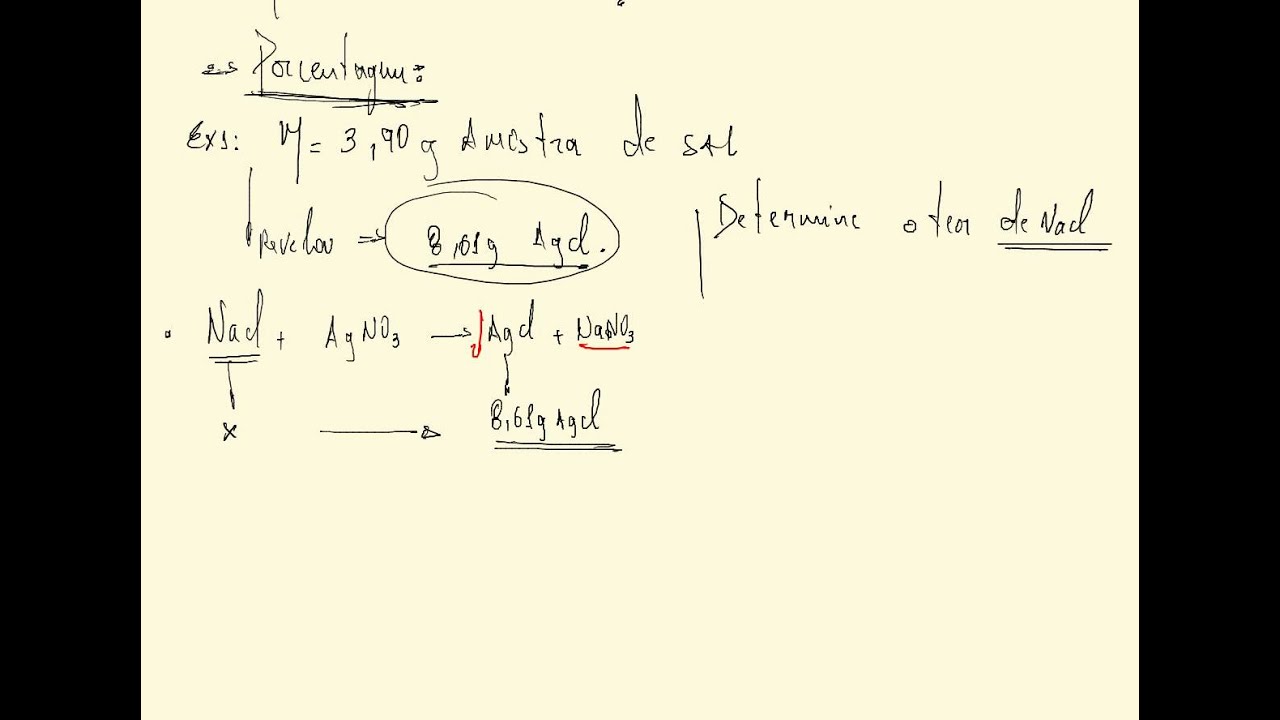 Porcentagem:
Ex1: M = 3,90g Amostra de sal
Revelou ⇒ 8,61g AgCl.
Determine o teor de NaCl
• NaCl + AgNO3 → ↓AgCl + NaNO3
x → 8,61g AgCl